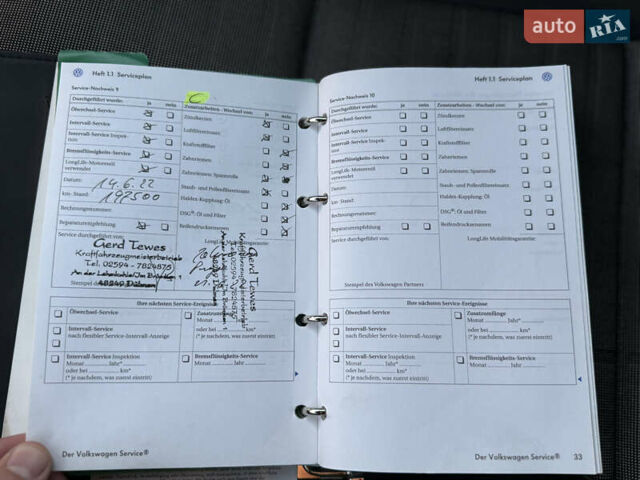 auto RIA .com
Heft 1.1 Serviceplan
Service-Nachweis 9
Durchgeführt wurde: ja nein
Ölwechsel-Service
Intervall-Service
Intervall-Service Inspek-
tion
Bremsflüssigkeits-Service
LongLife-Motorenöl
verwendet
Datum: 14.6.22
km-Stand:
Rechnungsnummer:
Reparaturempfehlung
Service durchgeführt von:
Gerd Tewes
Kraftfahrzeugmeisterbetrieb
Tel. 02594 - 7824875
48249 Dülmen
Stempel des
Zusatzarbeiten - Wechsel von: ja nein
Zündkerzen
Luftfiltereinsatz
Kraftstofffilter
Zahnriemen
Zahnriemen, Spannrolle
Staub- und Pollenfiltereinsatz
Haldex-Kupplung: Öl
DSG®: Öl und Filter
Reifendruckssensoren
LongLife Mobilitätsgarantie
Gerd Tewes
Kraftfahrzeugmeisterbetrieb
Ihre nächsten Service-Ereignisse
Ölwechsel-Service
Intervall-Service
nach flexibler Service-Intervall-Anzeige
Intervall-Service Inspektion
Monat Jahr*
oder bei km*
(* je nachdem, was zuerst eintritt)
Zusatzumfänge:
Monat Jahr*
oder bei km*
(* je nachdem, was zuerst eintritt)
Bremsflüssigkeits-Service
Monat Jahr
Der Volkswagen Service®
Heft 1.1 Serviceplan
Service-Nachweis 10
Durchgeführt wurde: ja nein
Ölwechsel-Service
Intervall-Service
Intervall-Service Inspek-
tion
Bremsflüssigkeits-Service
LongLife-Motorenöl
verwendet
Datum:
km-Stand:
Rechnungsnummer:
Reparaturempfehlung
Service durchgeführt von:
Stempel des Volkswagen Partners
Zusatzarbeiten - Wechsel von: ja nein
Zündkerzen
Luftfiltereinsatz
Kraftstofffilter
Zahnriemen
Zahnriemen, Spannrolle
Staub- und Pollenfiltereinsatz
Haldex-Kupplung: Öl
DSG®: Öl und Filter
Reifendruckssensoren
LongLife Mobilitätsgarantie
Ihre nächsten Service-Ereignisse
Ölwechsel-Service
Intervall-Service
nach flexibler Service-Intervall-Anzeige
Intervall-Service Inspektion
Monat Jahr*
oder bei km*
(* je nachdem, was zuerst eintritt)
Zusatzumfänge:
Monat Jahr*
oder bei km*
(* je nachdem, was zuerst eintritt)
Bremsflüssigkeits-Service
Monat Jahr
Der Volkswagen Service® 33